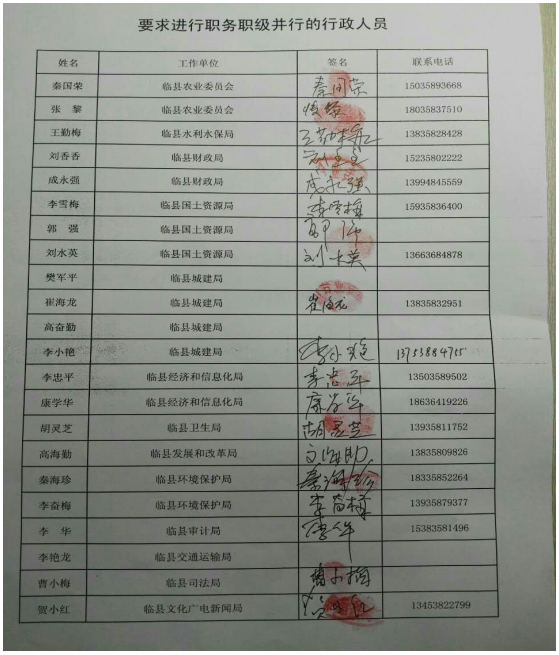 要求进行职务职级并行的行政人员
姓名 工作单位 签名 联系电话
秦国荣 临县农业委员会 秦国荣 15035893668
张 黎 临县农业委员会 张黎 18035837510
王勤梅 临县水利水保局 王勤梅 13835828428
刘香香 临县财政局 15235802222
成永强 临县财政局 成永强 13994845559
李雪梅 临县国土资源局 李雪梅 15935836400
郭 强 临县国土资源局
刘水英 临县国土资源局 刘水英 13663684878
樊军平 临县城建局
崔海龙 临县城建局 崔海龙 13835832951
高奋勤 临县城建局
李小艳 临县城建局 李小艳 13753884755
李忠平 临县经济和信息化局 李忠平 13503589502
康学华 临县经济和信息化局 康学华 18636419226
胡灵芝 临县卫生局 胡灵芝 13935811752
高海勤 临县发展和改革局 13835809826
秦海珍 临县环境保护局 秦海珍 18335852264
李奋梅 临县环境保护局 李奋梅 13935879377
李 华 临县审计局 李华 15383581496
李艳龙 临县交通运输局
曹小梅 临县司法局 曹小梅
贺小红 临县文化广电新闻局 13453822799